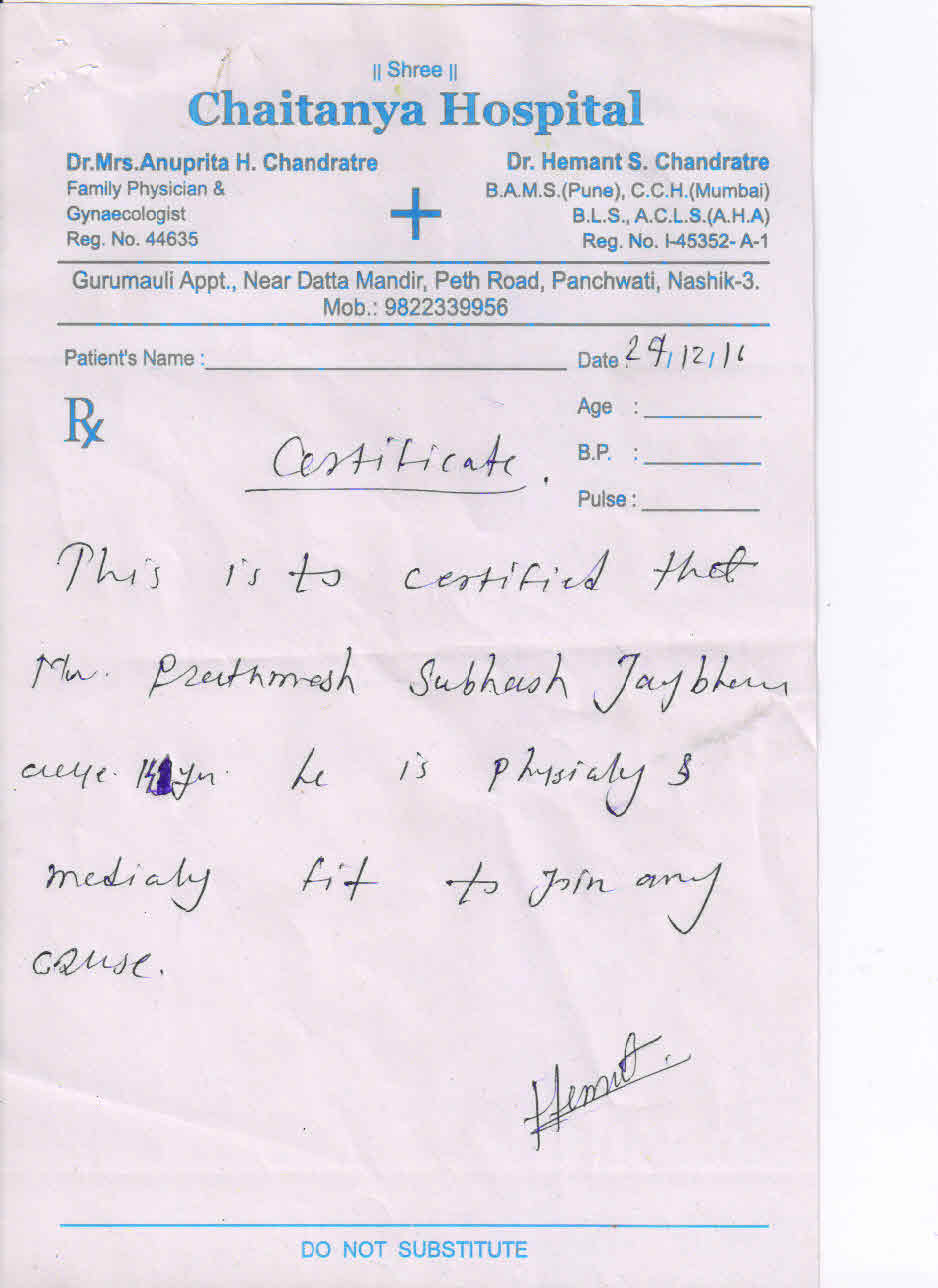 || Shree ||
Chaitanya Hospital
Dr.Mrs.Anuprita H. Chandratre
Family Physician &
Gynaecologist
Reg. No. 44635
Dr. Hemant S. Chandratre
B.A.M.S.(Pune), C.C.H.(Mumbai)
B.L.S., A.C.L.S.(A.H.A)
Reg. No. I-45352- A-1
Gurumauli Appt., Near Datta Mandir, Peth Road, Panchwati, Nashik-3.
Mob.: 9822339956
Patient's Name :
Date : /12/16
Age :
B.P. :
Pulse :
Rx
Certificate.
This is to certified that
Mr. Prathmesh Subhash
he is physialy &
medialy fit to join any
Hemant.
DO NOT SUBSTITUTE